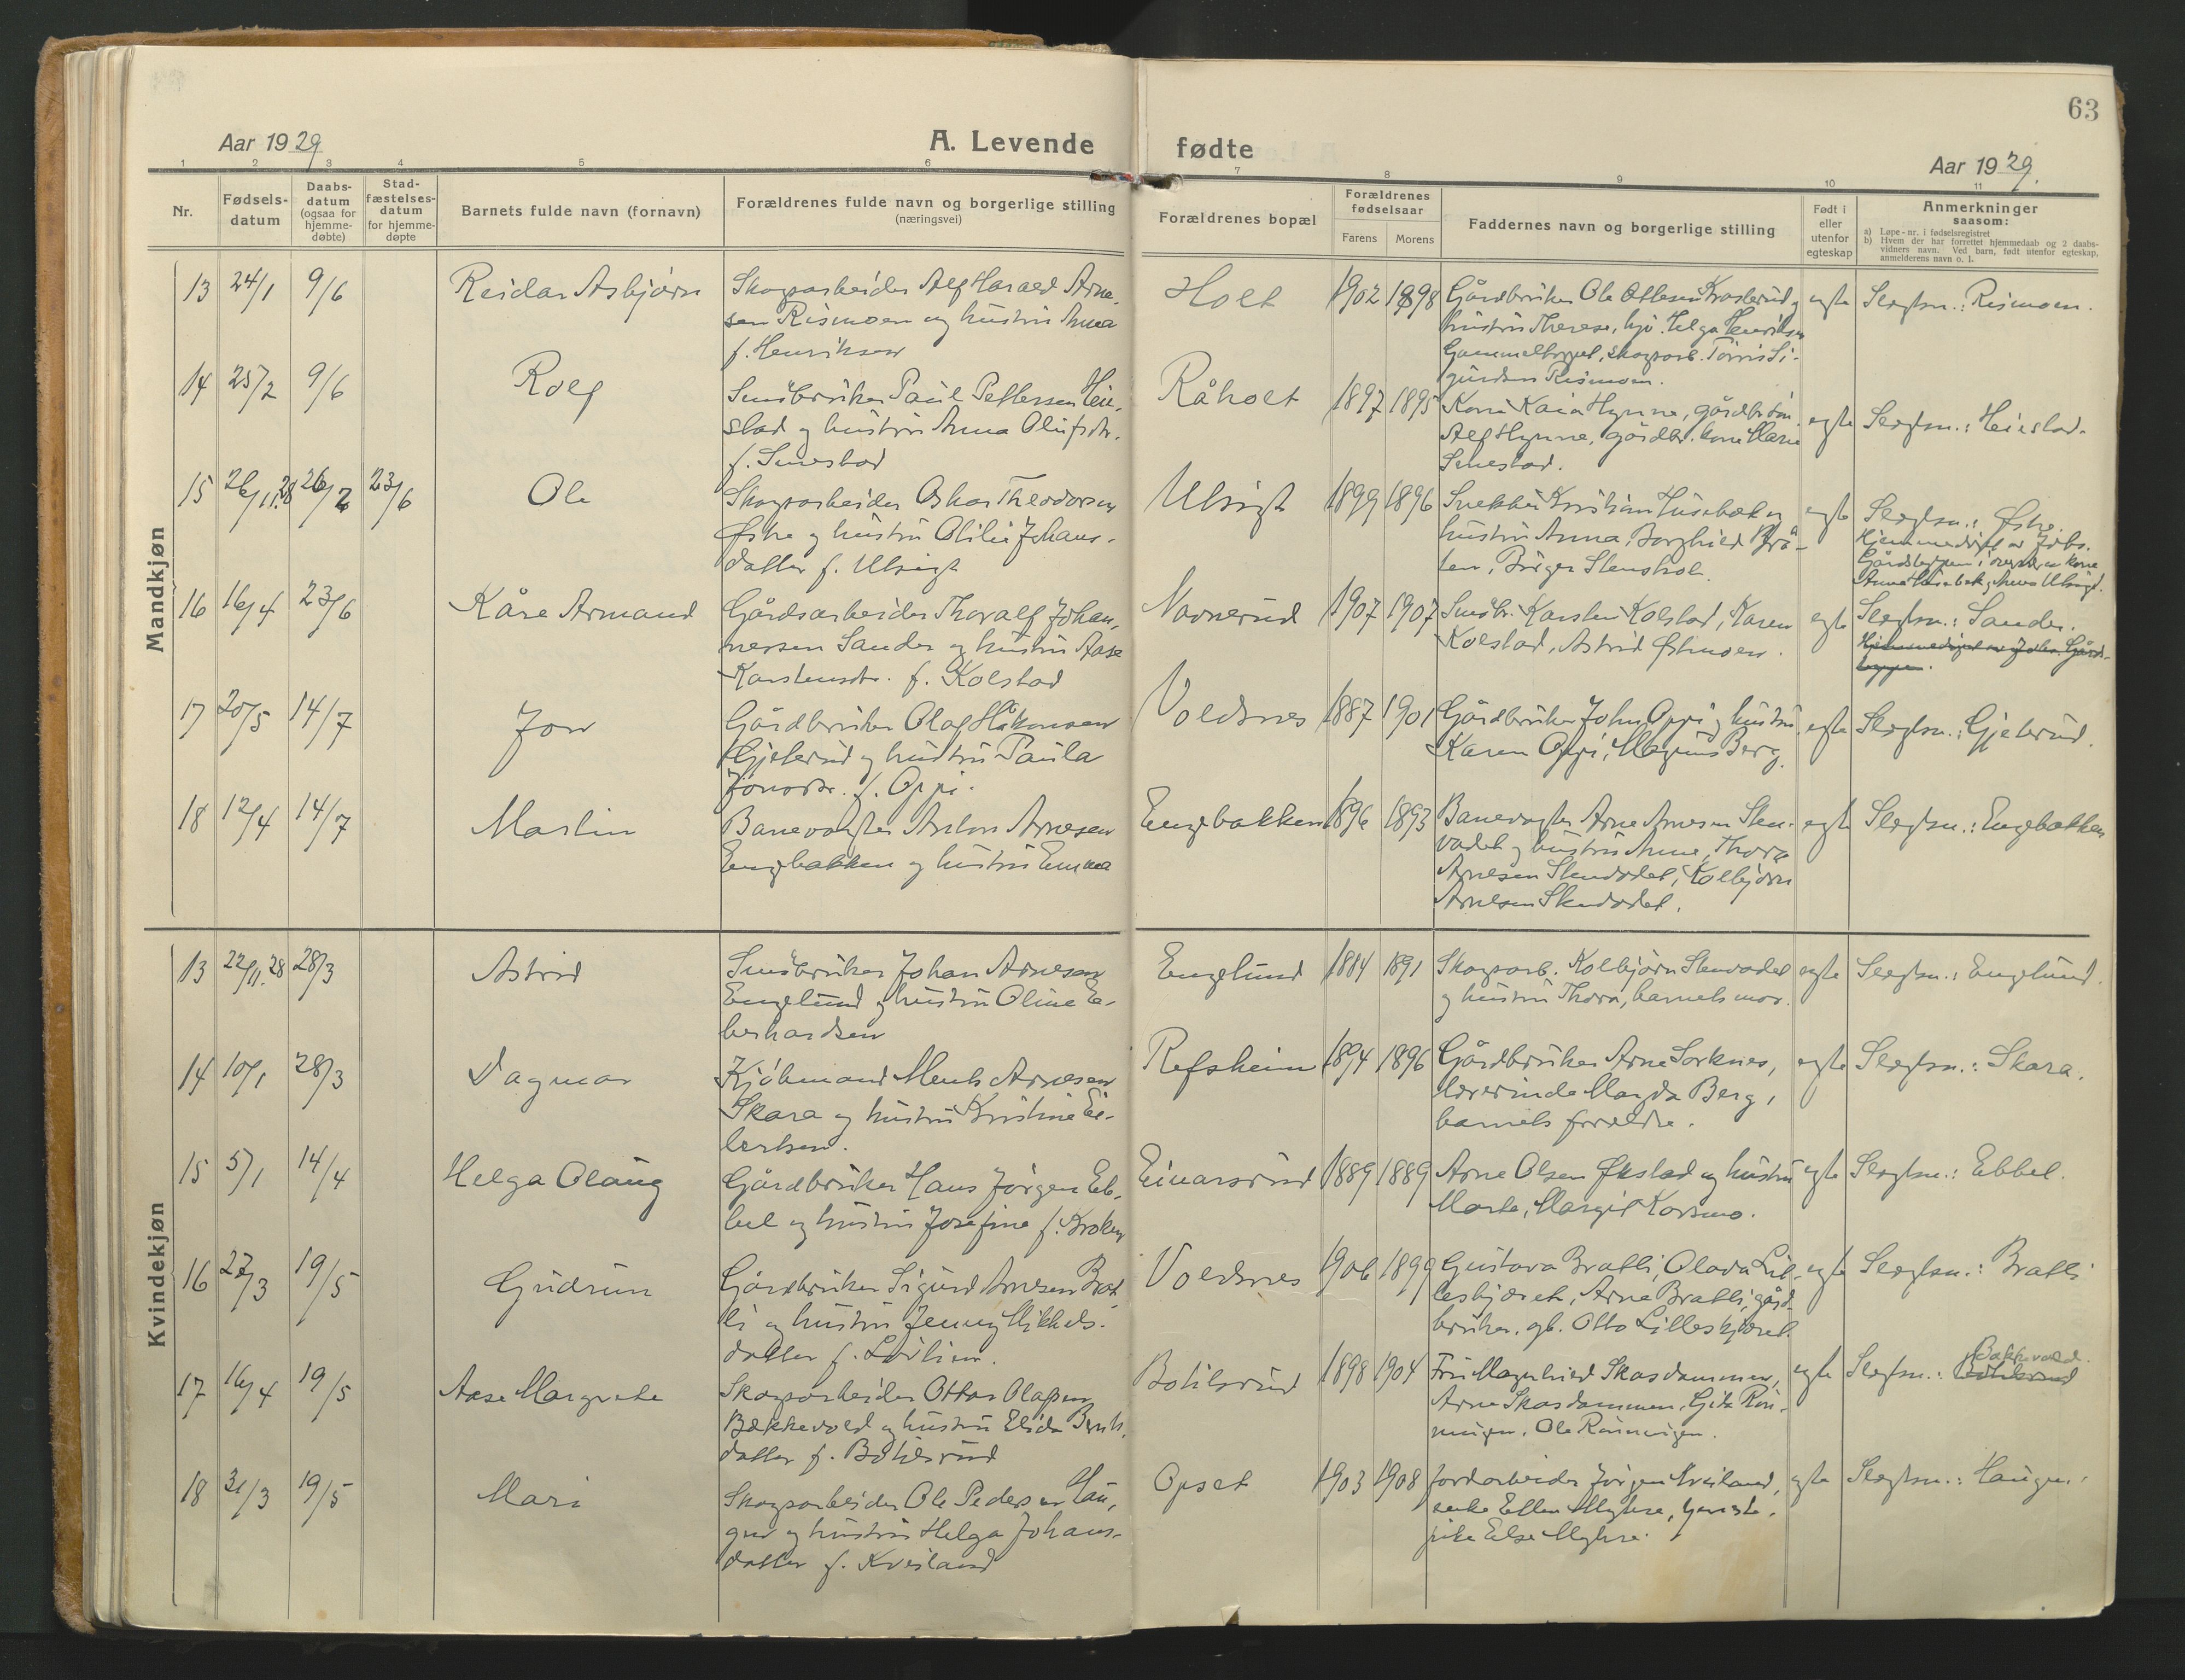 63
Aar 1929
A. Levende
fødte
Aar 1929.
1 2 3 4 5 6 7 8 9 10 11
Nr.
Fødsels-
datum
Daabs-
datum
(ogsaa for
hjemme-
døbte)
Stad-
fæstelses-
datum
for hjemme-
døpte
Barnets fulde navn (fornavn)
Forældrenes fulde navn og borgerlige stilling
(næringsvei)
Forældrenes bopæl
Forældrenes
fødselsaar
Farens
Morens
Faddernes navn og borgerlige stilling
Født i
eller
utenfor
egteskap
Anmerkninger
saasom:
a) Løpe-nr. i fødselsregistret
b) Hvem der har forrettet hjemmedaab og 2 daabs-
vidners navn. Ved barn, født utenfor egteskap,
anmelderens navn o. l.
Mandkjøn
13 24/1 9/6
Reidar Asbjørn
Skogsarbeider Alf Harald Arne-
sen Rismoen og hustru Anna
f. Henriksen
Holt
1902 1898
Gårdbruker Ole Ottesen Krosterud og
hustru Therese, Helga Henriksen
Gammeltorpet, skogsarb.
Rismoen.
egte
Slegtsn.: Rismoen.
14 25/2 9/6
Rolf
Småbruker Paul Pettersen Heie-
stad og hustru Anna Olufsdtr.
f. Smestad
Råholt
1897 1895
Kone Kaia Hynne, gårdbr.søn
Alf Hynne, gårdbr. kone Marie
Smestad.
egte
Slegtsn.: Heiestad.
15 26/11.28 26/2 23/6
Ole
Skogsarbeider Oskar Theodorsen
Østre og hustru Otilie Johans-
datter f. Ulvigt
Ulvigt
1899 1896
Snekker Kristian Husebæk og
hustru Anna, Borghild Brå-
ten, Birger Stenshol.
egte
Slegtsn.: Østre.
Hjemmedøpt av Jobs.
kone
Anna Husebæk og Anna Ulvigt.
16 16/4 23/6
Kåre Armand
Gårdsarbeider Thoralf Johan-
nessen Sander og hustru Aase
Karstensdtr. f. Kolstad
Navnerud
1907 1907
Småbr. Karsten Kolstad, Karen
Kolstad, Astrid Østmoen.
egte
Slegtsn.: Sander.
17 20/5 14/7
Jon
Gårdbruker Olaf Håkonsen
Gjeterud og hustru Paula
Jonsdtr. f. Oppi.
Voldsnes
1887 1901
Gårdbruker John Oppi og hustru
Karen Oppi, Magnus Berg.
egte
Slegtsn.: Gjeterud.
18 12/4 14/7
Martin
Banevogter Anton Arnesen
Engebakken og hustru Emma
Engebakken
1896 1893
Banevogter Arne Arnesen Sten-
vadet og hustru Anne, Thora
Arnesen Stenvadet, Kolbjørn
Arnesen Stenvadet.
egte
Slegtsn.: Engebakken
Kvindekjøn
13 22/11.28 28/3
Astrid
Småbruker Johan Arnesen
Engelund og hustru Oline E-
berhardsen
Engelund
1884 1891
Skogsarb. Kolbjørn Stenvadet
og hustru Thora, barnets mor.
egte
Slegtsn.: Engelund.
14 10/1 28/3
Dagmar
Kjøbmand Ments Arnesen
Skara og hustru Kristine Ei-
lertsen.
Refsheim
1894 1896
Gårdbruker Arne Sorknes,
lærerinde Magda Berg,
barnets forældre.
egte
Slegtsn.: Skara.
15 5/1 14/4
Helga Olaug
Gårdbruker Hans Jørgen Eb-
bel og hustru Josefine f. Broken
Einarsrud
1889 1889
Arne Olsen Økstad og hustru
Marte, Margit Korsmo.
egte
Slegtsn.: Ebbel.
16 27/3 19/5
Gudrun
Gårdbruker Sigurd Arnesen Brat-
li og hustru Jenny Mikkels-
datter f. Lørlien.
Voldsnes
1906 1899
Gustava Bratli, Olava Lil-
leskjæret, Arne Bratli, gård-
bruker, gb. Otto Lilleskjæret.
egte
Slegtsn.: Bratli
17 16/4 19/5
Aase Margrete
Skogsarbeider Ottar Olafsen
Bækkevold og hustru Elida Bernts-
datter f. Botilsrud
Botilsrud
1898 1904
Fru Magnhild Skasdammen,
Arne Skasdammen, Gitta Røn-
ningen, Ole Rønningen.
egte
Slegtsn.: Botilsrud Bækkevold.
18 31/3 19/5
Mari
Skogsarbeider Ole Pedersen Hau-
gen og hustru Helga Johans-
datter f. Kveiland
Opset
1903 1908
Jordarbeider Jørgen Kveiland,
enke Ellen Myhre, tjeneste-
pike Else Myhre.
egte
Slegtsn.: Haugen.